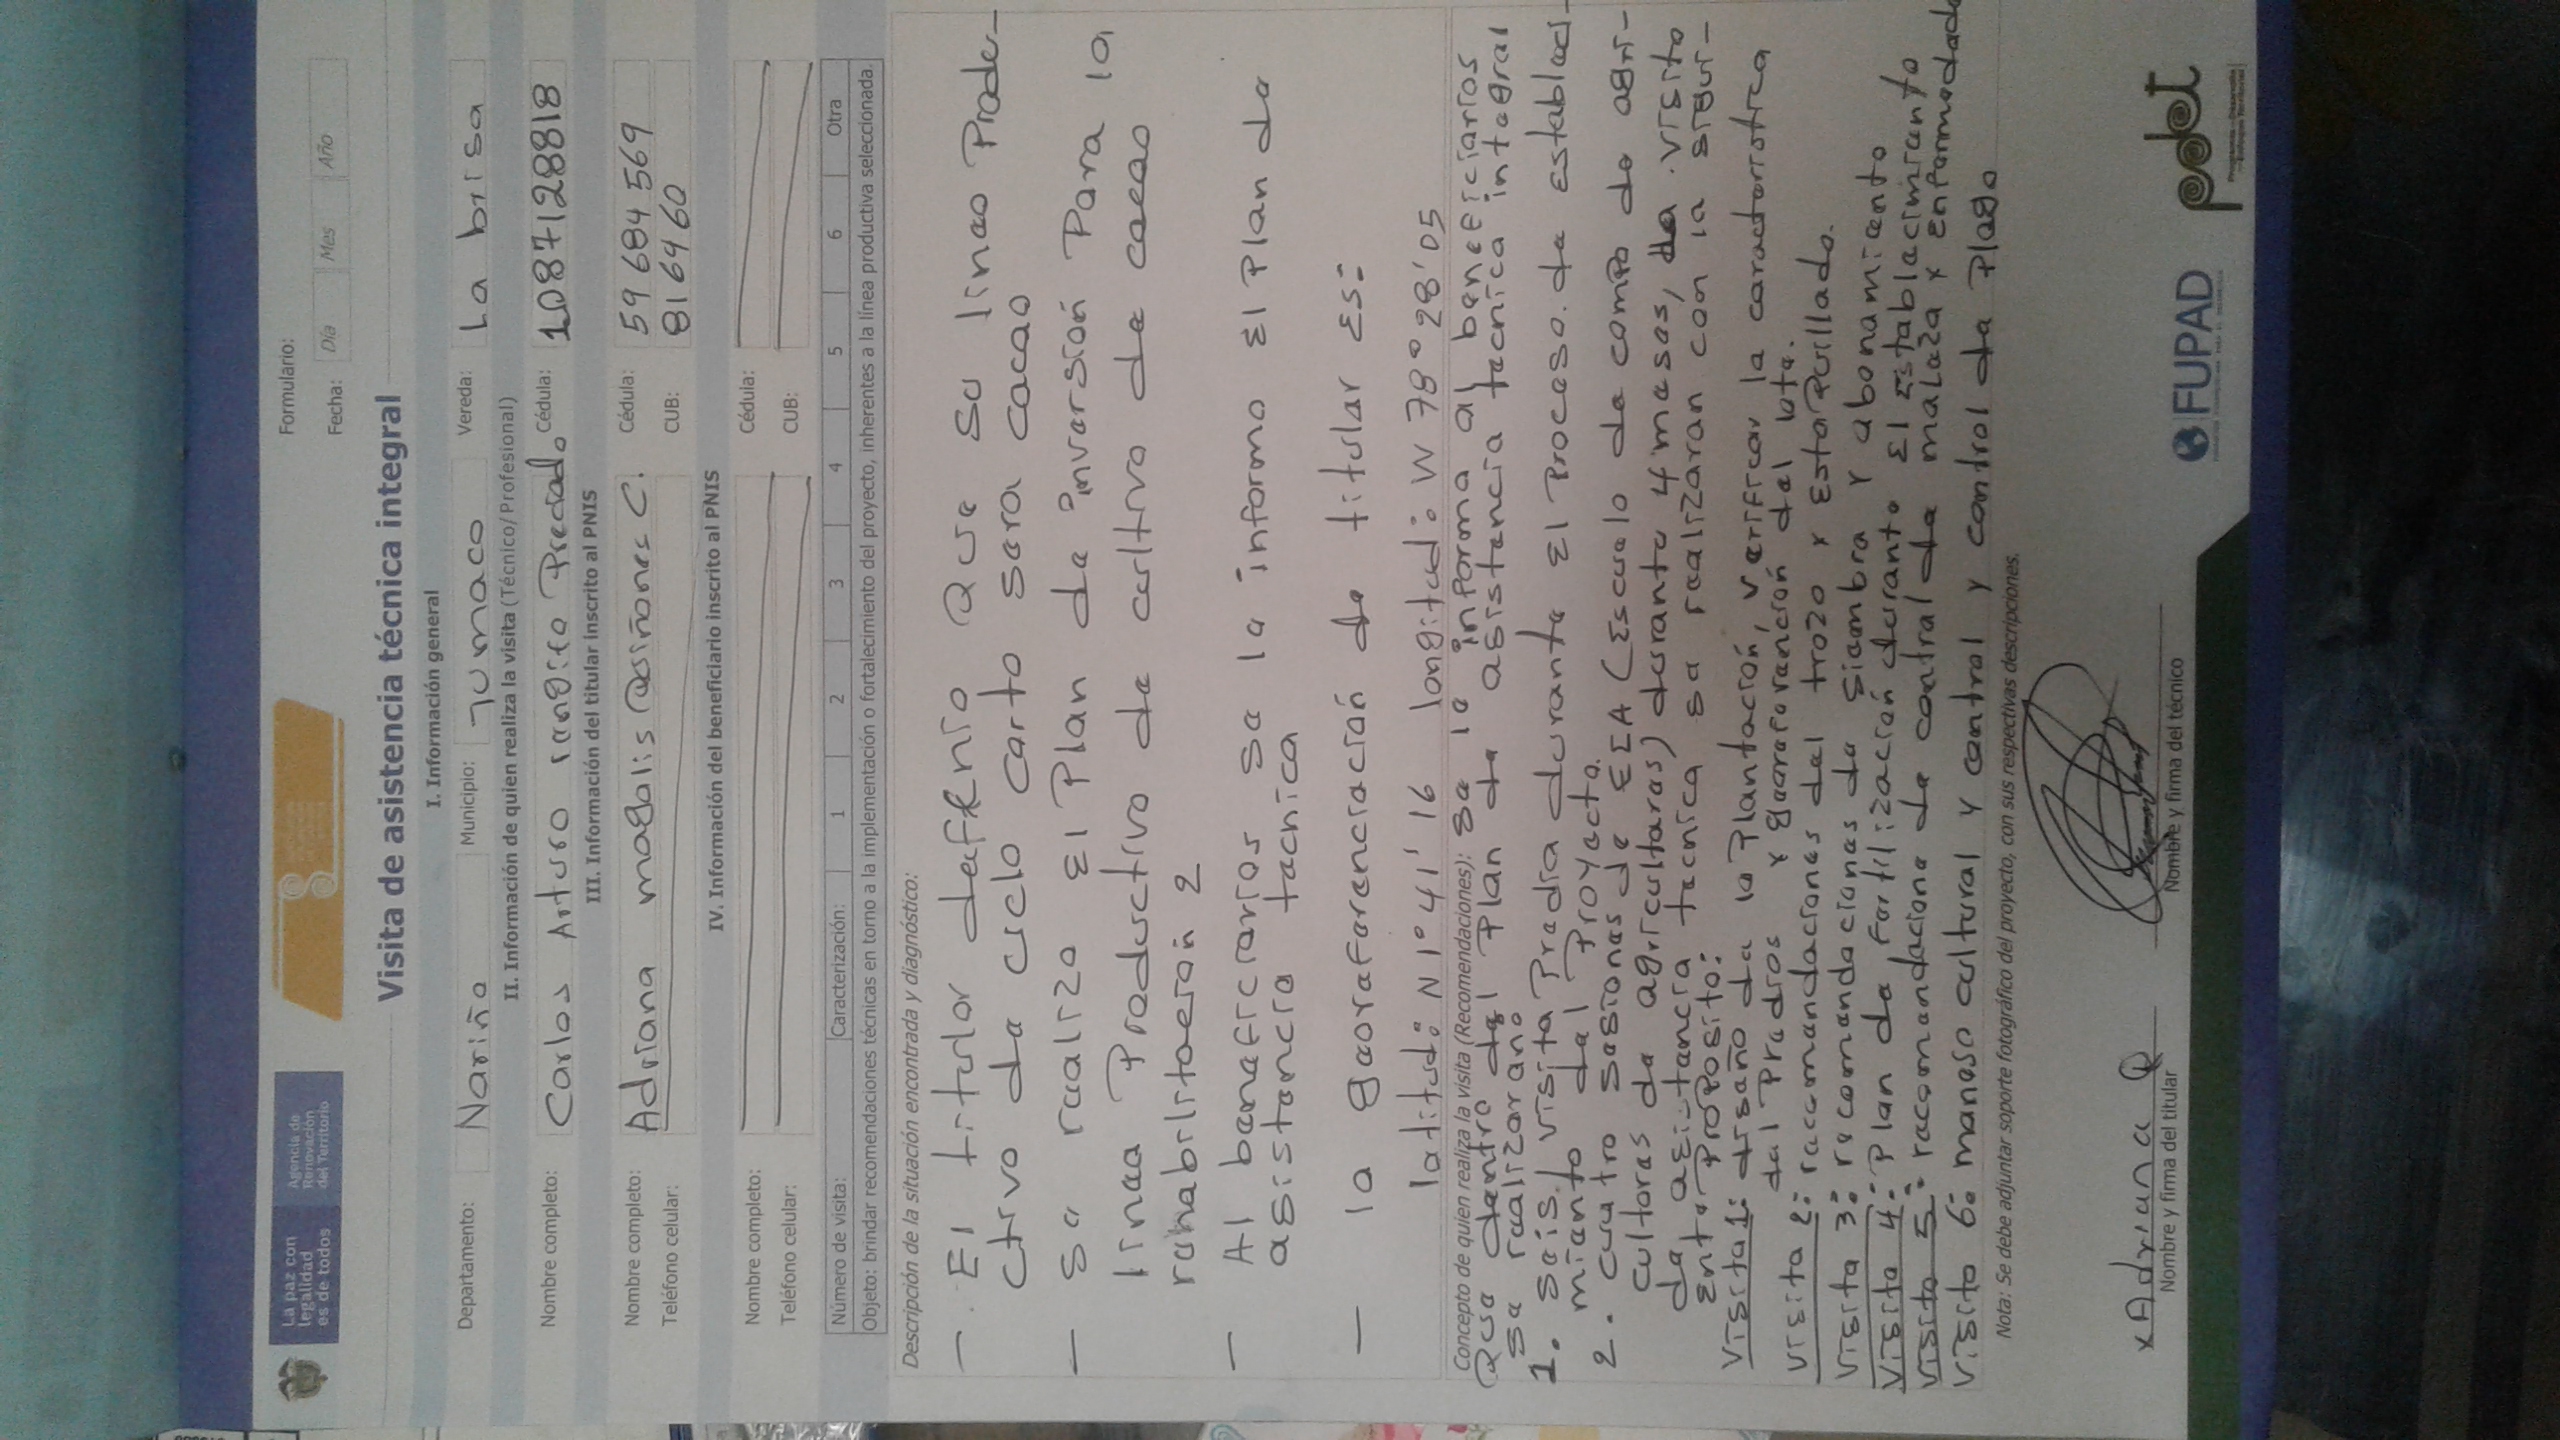 La paz con
legalidad
es de todos
Agencia de
Renovación
del Territorio
Formulario:
Fecha: Día Mes Año
Visita de asistencia técnica integral
I. Información general
Departamento: Nariño Municipio: Tumaco Vereda: La brisa
II. Información de quien realiza la visita (Técnico/Profesional)
Nombre completo: Carlos Arturo Preciado Cédula: 1087128818
III. Información del titular inscrito al PNIS
Nombre completo: Adriana magalis Quiñones C. Cédula: 59684569
Teléfono celular: CUB: 816460
IV. Información del beneficiario inscrito al PNIS
Nombre completo: Cédula:
Teléfono celular: CUB:
Número de visita: Caracterización: 1 2 3 4 5 6 Otra
Objeto: brindar recomendaciones técnicas en torno a la implementación o fortalecimiento del proyecto, inherentes a la línea productiva seleccionada.
Descripción de la situación encontrada y diagnóstico:
- El titular defenio Que su linea Produ-
ctivo de ciclo carto sera cacao
- se realizo El Plan de inversión Para la
linea Productivo de cultivo de cacao
rehabilitación 2
- Al beneficiarios se la informo El Plan de
asistencia tecnica
- la georeferenciación de titular Es:
latitud: N1°41'16 longitud: W 78°28'05
Concepto de quien realiza la visita (Recomendaciones): se le informa al beneficiarios
Que dentro del Plan de la asistencia tecnica integral
se realizarano
1. seis visita Predia durante El Proceso de establesi-
miento del Proyecto.
2. cuatro sesiones de EEA (Escuela de compo de agri-
cultores de agricultores) durante 4 meses, la visita
de asistencia tecnica se realizaran con la sigui-
Ente Proposito:
Visita 1: diseño de la Plantación, verificar la caracteristica
del Pradios y georeferanción del lote.
Visita 2: recomendaciones del trazo y Estaquillado.
Visita 3: recomendaciones de siembra y abonamiento
Visita 4: Plan de fertilización durante El Establecimiento
Visita 5: recomendaciono de control de maleza y enfermedade
Visita 6: maneso cultural y control y control de Plaga
Nota: Se debe adjuntar soporte fotográfico del proyecto, con sus respectivas descripciones.
x Adriana Q
Nombre y firma del titular
Nombre y firma del técnico
FUPAD
pdet